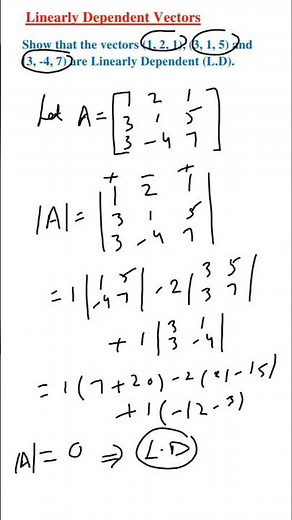 Linearly Dependent Vectors
Show that the vectors (1, 2, 1), (3, 1, 5) and
(3, -4, 7) are Linearly Dependent (L.D).
Let A = [1 2 1
3 1 5
3 -4 7]
+ - +
|A| = |1 2 1
3 1 5
3 -4 7|
= 1 |1 5
-4 7| - 2 |3 5
3 7|
+ 1 |3 1
3 -4|
= 1(7+20) - 2(21-15)
+ 1(-12-3)
|A| = 0 ⇒ L.D